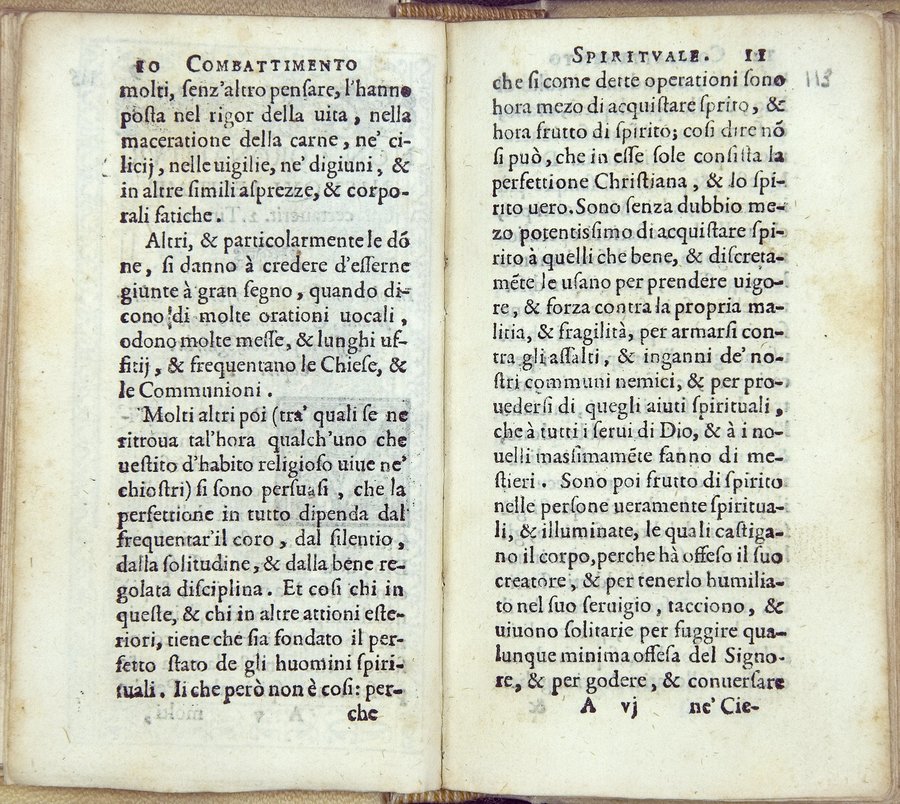 10 COMBATTIMENTO
molti, ſenz'altro penſare, l'hanno
poſta nel rigor della uita, nella
maceratione della carne, ne' ci-
licij, nelle uigilie, ne' digiuni, &
in altre ſimili aſprezze, & corpo-
rali fatiche.
Altri, & particolarmente le dó
ne, ſi danno à credere d'eſſerne
giunte à gran ſegno, quando di-
cono di molte orationi uocali,
odono molte meſſe, & lunghi uf-
fitij, & frequentano le Chieſe, &
le Communioni.
Molti altri poi (tra' quali ſe ne
ritroua tal'hora qualch'uno che
ueſtito d'habito religioſo uiue ne'
chioſtri) ſi ſono perſuaſi, che la
perfettione in tutto dipenda dal
frequentar'il coro, dal ſilentio,
dalla ſolitudine, & dalla bene re-
golata diſciplina. Et coſi chi in
queſte, & chi in altre attioni eſte-
riori, tiene che ſia fondato il per-
fetto ſtato de gli huomini ſpiri-
tuali. Ii che però non è coſi: per-
che
SPIRITVALE. 11
che ſi come dette operationi ſono
hora mezo di acquiſtare ſprito, &
hora frutto di ſpirito; coſi dire nõ
ſi può, che in eſſe ſole conſiſta la
perfettione Chriſtiana, & lo ſpi-
rito uero. Sono ſenza dubbio me-
zo potentiſſimo di acquiſtare ſpi-
rito à quelli che bene, & diſcreta-
mẽte le uſano per prendere uigo-
re, & forza contra la propria ma-
litia, & fragilità, per armarſi con-
tra gli aſſalti, & inganni de' no-
ſtri communi nemici, & per pro-
uederſi di quegli aiuti ſpirituali,
che à tutti i ſerui di Dio, & à i no-
uelli maſſimamẽte fanno di me-
ſtieri. Sono poi frutto di ſpirito
nelle perſone ueramente ſpiritua-
li, & illuminate, le quali caſtiga-
no il corpo, perche hà offeſo il ſuo
creatore, & per tenerlo humilia-
to nel ſuo ſeruigio, tacciono, &
uiuono ſolitarie per fuggire qua-
lunque minima offeſa del Signo-
re, & per godere, & conuerſare
A vj ne' Cie-
113